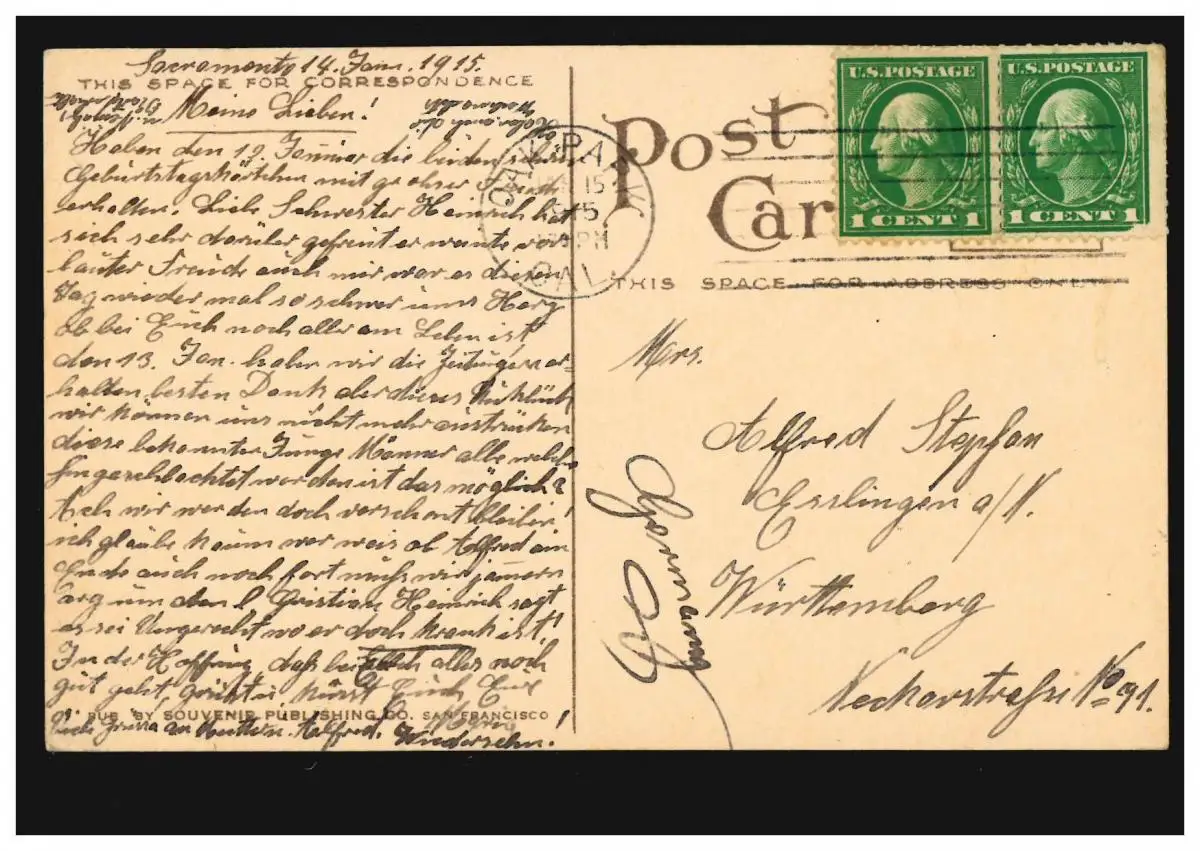 Sacramento 14. Jan. 1915.
THIS SPACE FOR CORRESPONDENCE
Meine Lieben!
Haben den 12 Januar die beiden schön
Geburtstagskärtchen mit grohser Freude
erhalten. Liebe Schwester Heinrich hat
sich sehr darüber gefreut er weinte vor
lauter Freude auch mir war es diesen
Tag wieder mal so schwer ums Herz
ob bei Euch noch alles am Leben ist
den 13. Jan. haben wir die Zeitungen er-
halten besten Dank aber dieses
wir können uns nicht mehr austrücken
diese bekannten Junge Männer alle welche
hingeschlachtet worden ist das möglich?
Ach wir werden doch verschont bleiben!
ich glaube kaum wer weis ob Alfred am
Ende auch noch fort muhs wir jamern
arg um den l. Cristian Heinrich sagt
es sei Ungerecht wo er doch krank ist!
In der Hoffnung dahs bei Euch alles noch
gut geht, grühst u. küsst Euch Eure
PUB. BY SOUVENIR PUBLISHING CO. SAN FRANCISCO
Alfred. Wiedersehn!
Post Card
THIS SPACE FOR ADDRESS ONLY
OAK PARK
CAL.
U.S. POSTAGE
1 CENT 1
U.S. POSTAGE
1 CENT 1
Mrs.
Alfred Stephan
Esslingen a/N.
Württemberg
Neckarstrahse No 91.
Germany